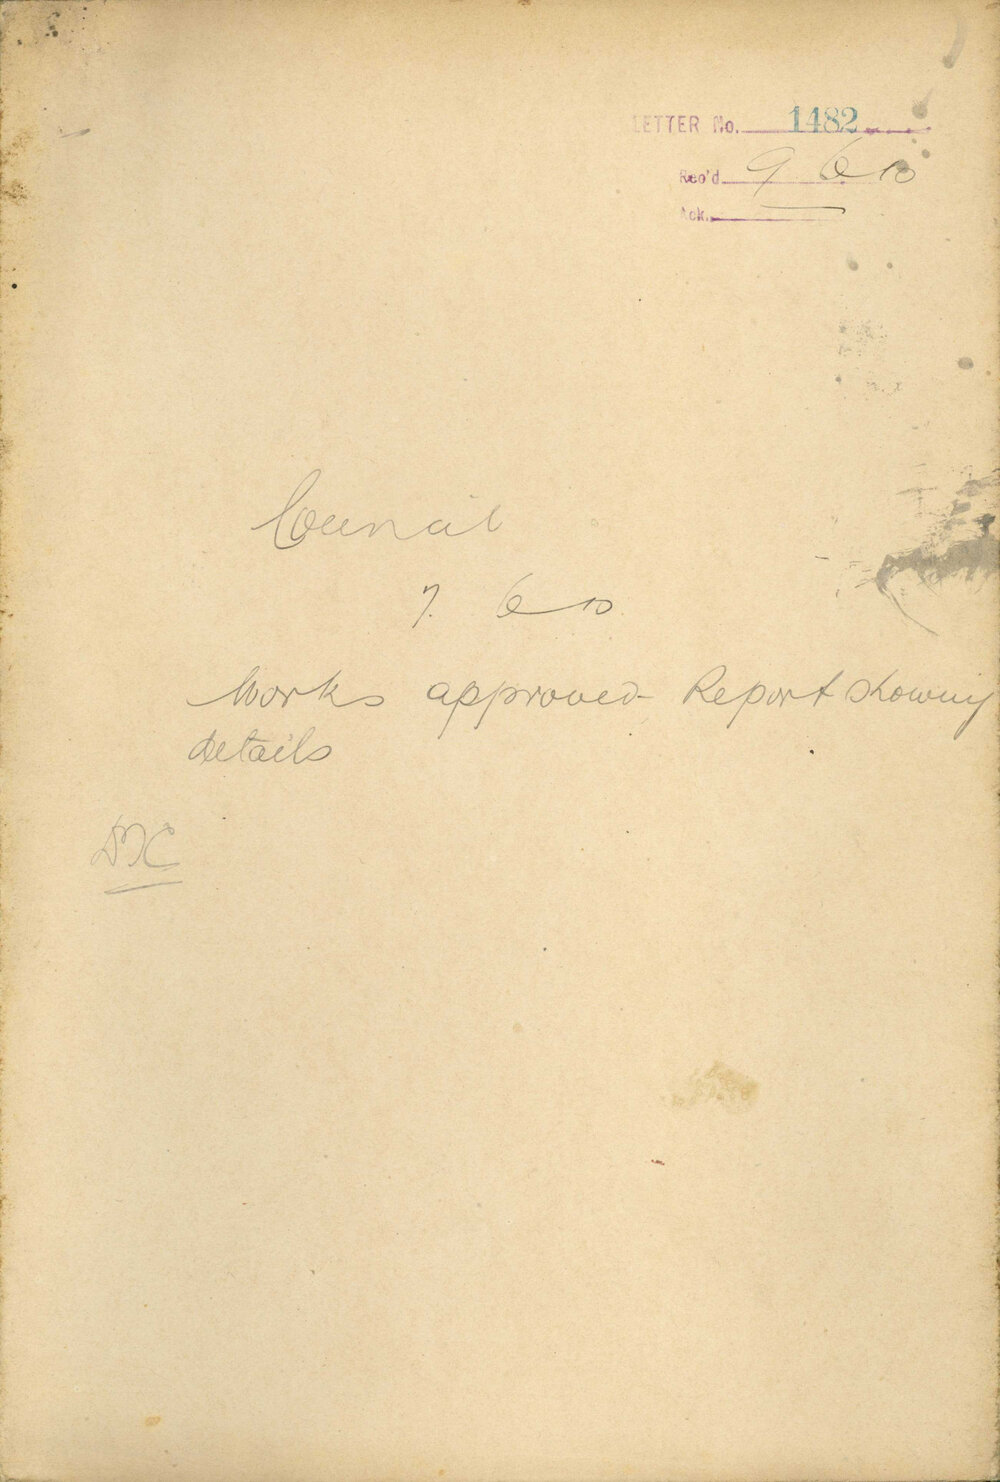 LETTER No. 1482
Rec'd. 9 6 10
Ack.
Council
7. 6 10
Works approved - Report showing
details